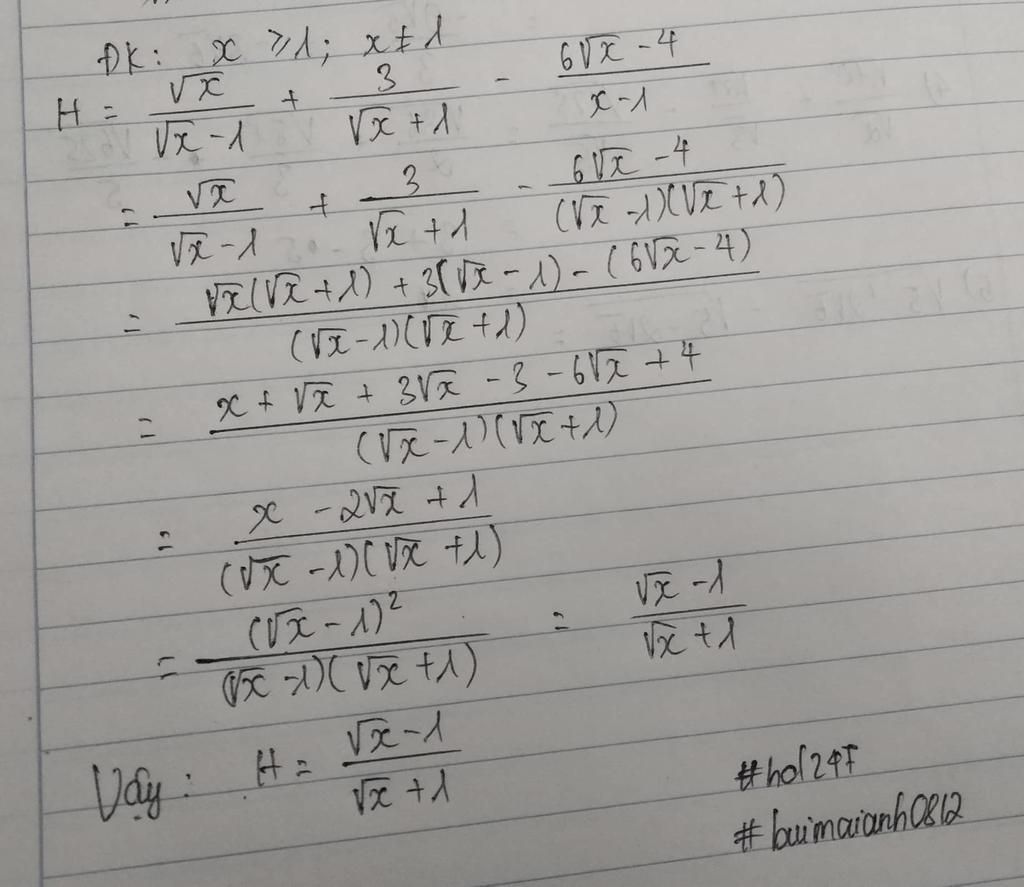 ĐK: x ⩾ 1; x ≠ 1
H = √x/(√x - 1) + 3/(√x + 1) - (6√x - 4)/(x - 1)
= √x/(√x - 1) + 3/(√x + 1) - (6√x - 4)/((√x - 1)(√x + 1))
= (√x(√x + 1) + 3(√x - 1) - (6√x - 4))/((√x - 1)(√x + 1))
= (x + √x + 3√x - 3 - 6√x + 4)/((√x - 1)(√x + 1))
= (x - 2√x + 1)/((√x - 1)(√x + 1))
= (√x - 1)²/((√x - 1)(√x + 1)) = (√x - 1)/(√x + 1)
Vậy: H = (√x - 1)/(√x + 1)
#buimaianh0812